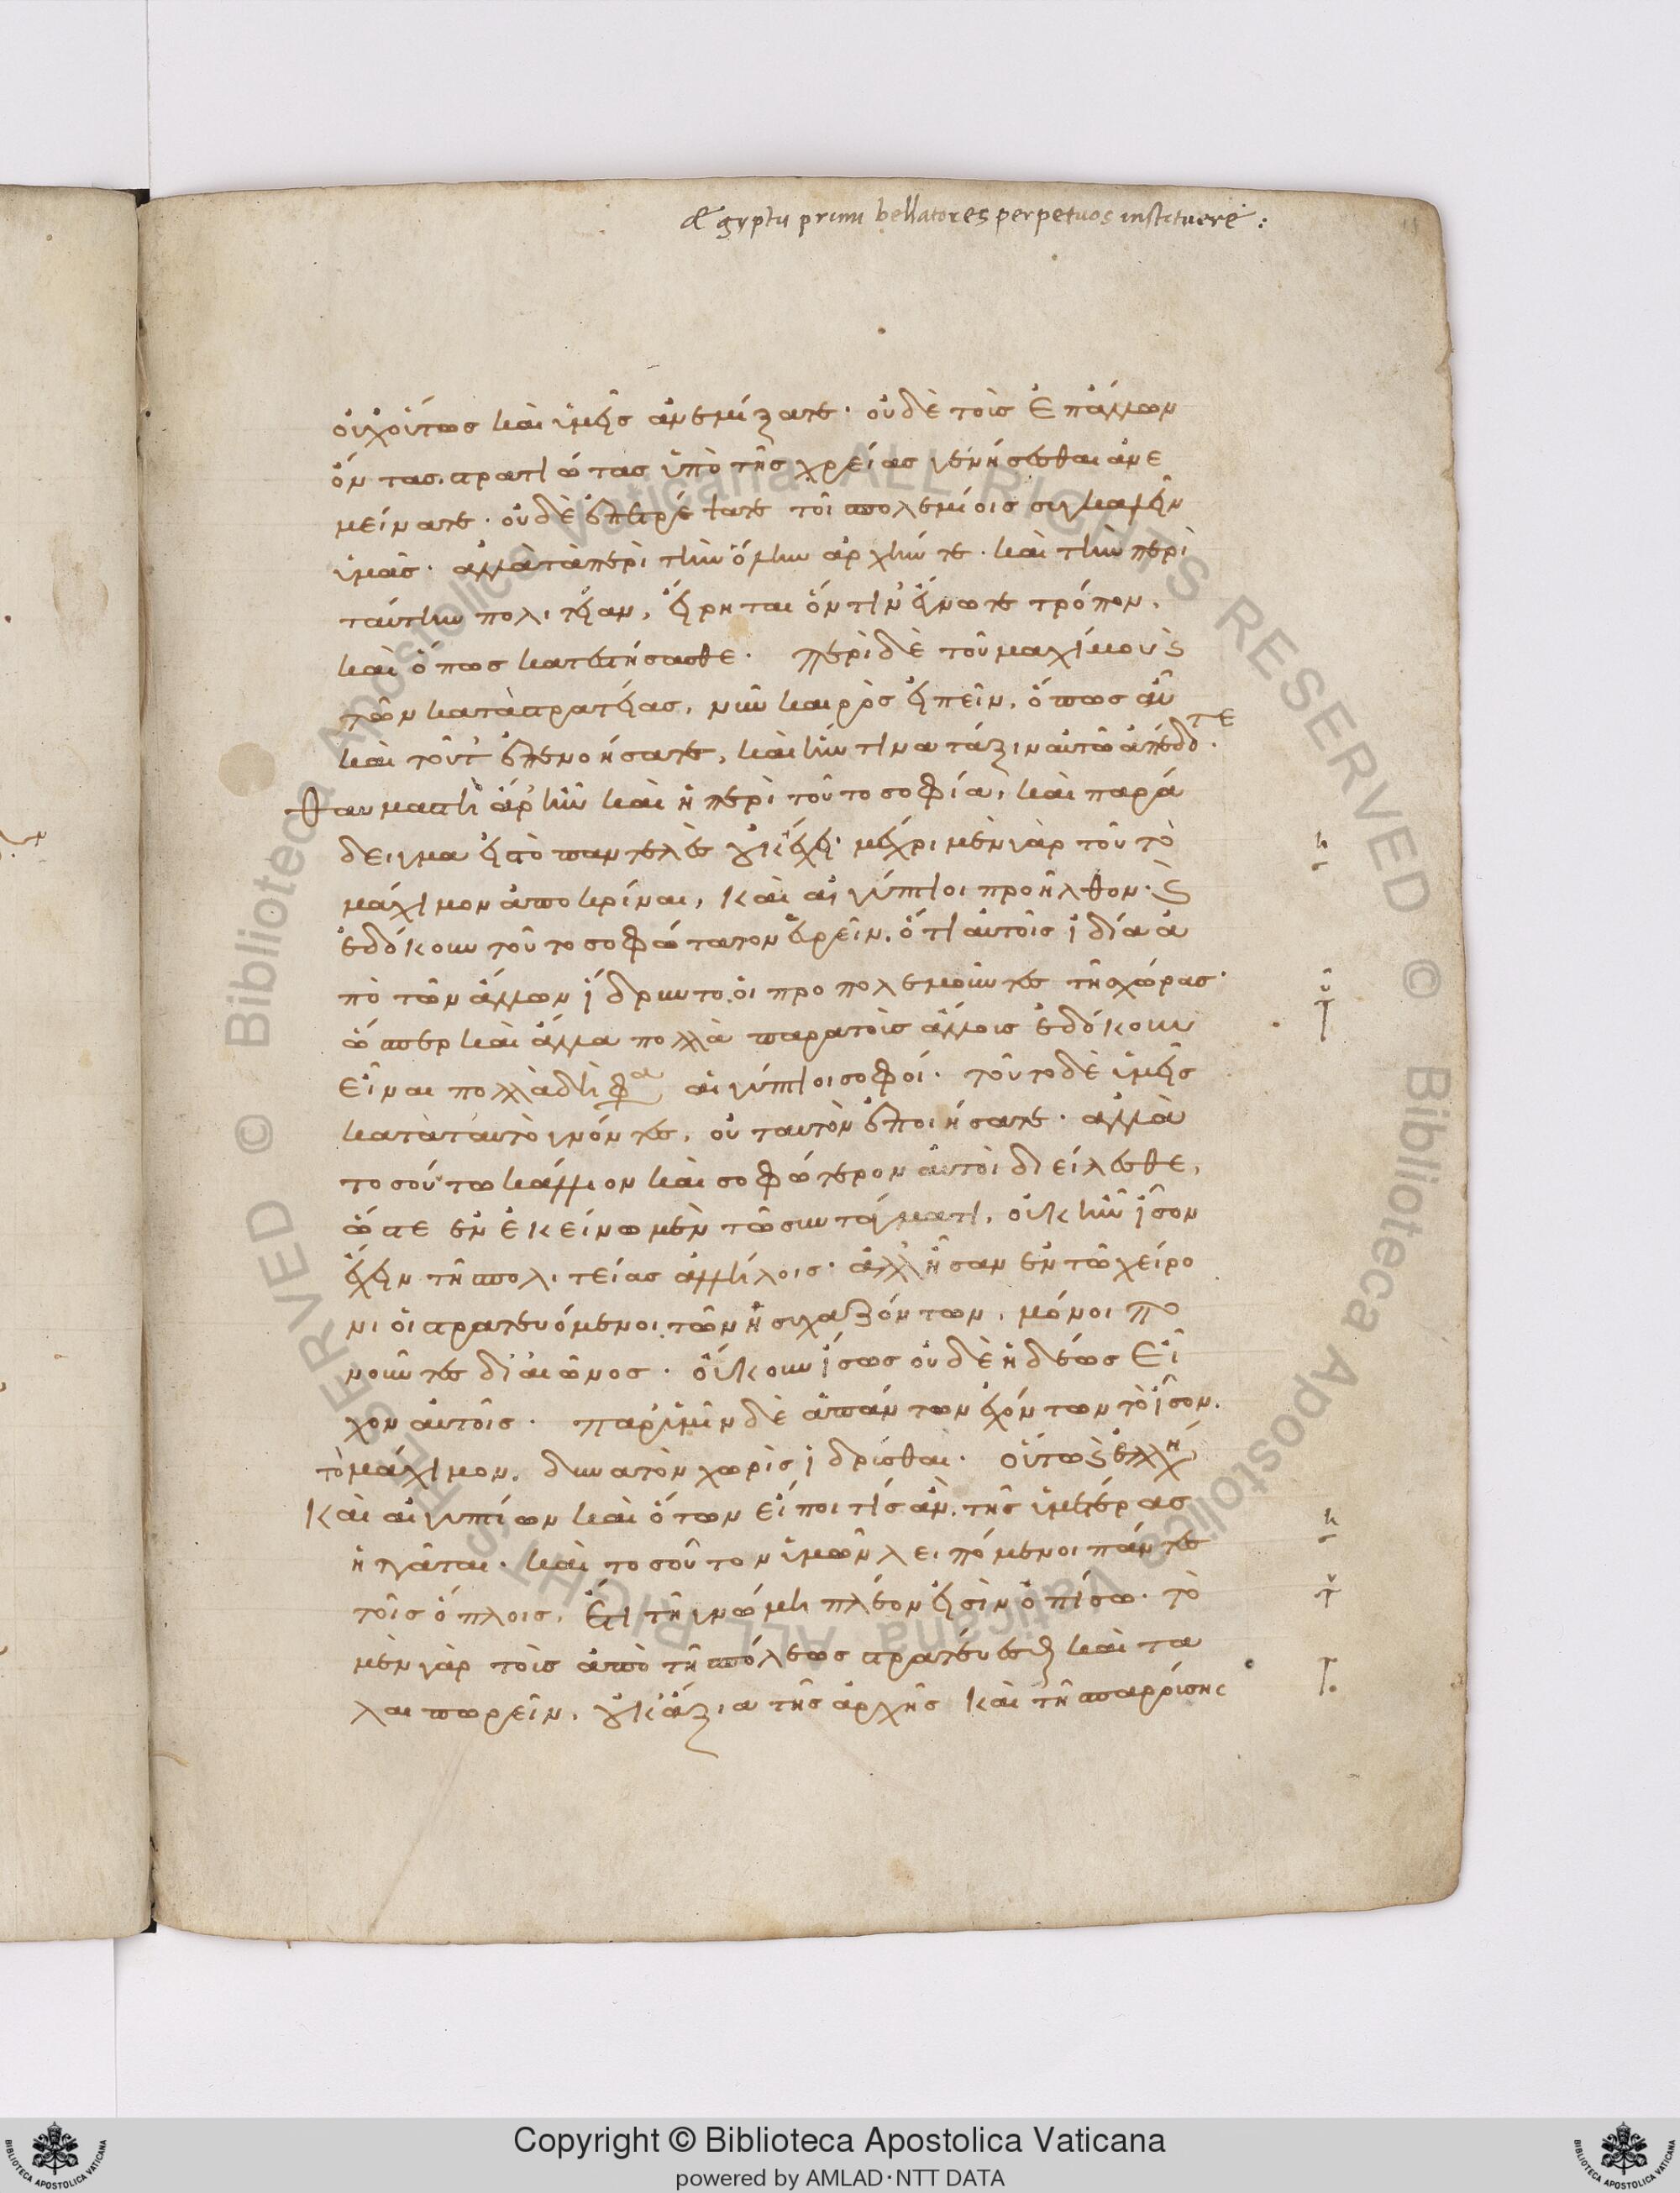 Ægyptii primi bellatores perpetuos instituere :
οὐχ οὕτως καὶ ὑμεῖς ἀνεμίξατε · οὐδὲ τοῖς ἐπ' ἄλλων
ὄντας στρατιώτας ὑπὸ τῆς χρείας γενήσεσθαι ἀνε
μείνατε · οὐδὲ ἐπετρέψατε τοῖ πολεμίοις συγκαλεῖν
ὑμᾶς · ἀλλὰ τὰ περὶ τὴν ὅλην ἀρχήν τε · καὶ τὴν περὶ
ταύτην πολιτείαν, εἴρηται ὅντιν' ἔγνωτε τρόπον,
καὶ ὅπως κατεστήσασθε · περὶ δὲ τοῦ μαχίμου ϛ
τῶν κατὰ στρατείας, νῦν καιρὸς εἰπεῖν, ὅπως αὖ
καὶ τοῦτ' ἐπενοήσατε, καὶ ἥντινα τάξιν αὐτῶ ἀπέδοτε ·
Θαυμαστὴ ἄρ' ἦν καὶ ἡ περὶ τοῦτο σοφία, καὶ παρά
δειγμα εἰς τὸ παντελὲς οὐκ εἶχεν · μέχρι μὲν γὰρ τοῦ τὸ
μάχιμον ἀποκρίναι, καὶ αἰγύπτιοι προῆλθον · ϛ
ἐδόκουν τοῦτο σοφώτατον εὑρεῖν, ὅτι αὐτοῖς ἰδία ἀ
πὸ τῶν ἄλλων ἵδρυντο οἱ προπολεμοῦντες τῆς χώρας ·
ὥσπερ καὶ ἄλλα πολλὰ παρα τοῖς ἄλλοις ἐδόκουν
εἶναι πολλὰ δὴ φα αἰγύπτιοι σοφοί · τοῦτο δὲ ὑμεῖς
κατὰ ταυτὸ γνόντες, οὐ ταυτὸν ἐποιήσατε · ἀλλὰ
τοσούτω κάλλιον καὶ σοφώτερον αὐτοὶ διείλεσθε,
ὥστε ἐν ἐκείνω μὲν τῶ συντάγματι, οὐκ ἦν ἶσον
ἔχειν τῆς πολιτείας ἀλλήλοις · ἀλλ' ἦσαν ἐν τῶ χείρο
νι οἱ στρατευόμενοι τῶν ἡσυχαζόντων, μόνοι πο
νοῦντες δι' αἰῶνος · οὔκουν ἴσως οὐδὲ ἡδέως εἶ
χον αὐτοῖς · παρ' ὑμῖν δὲ ἁπάντων ἐχόντων τὸ ἶσον,
τὸ μάχιμον, δυνατὸν χωρὶς ἱδρύσθαι · οὕτως ἑλλή
καὶ αἰγυπτίων καὶ ὅτων εἴποι τίς ἂν, τῆς ὑμετέρας
ἡττᾶται · καὶ τοσοῦτον ὑμῶν λειπόμενοι πάντες
τοῖς ὅπλοις, ἔτι τῆ γνώμη πλέον εἰσὶν ὀπίσω · τὸ
μὲν γὰρ τοῖς ἀπὸ τῆς πόλεως στρατεύεσθ καὶ τα
λαιπωρεῖν, οὐκ ἄξια τῆς ἀρχῆς καὶ τῆς παρρύσης